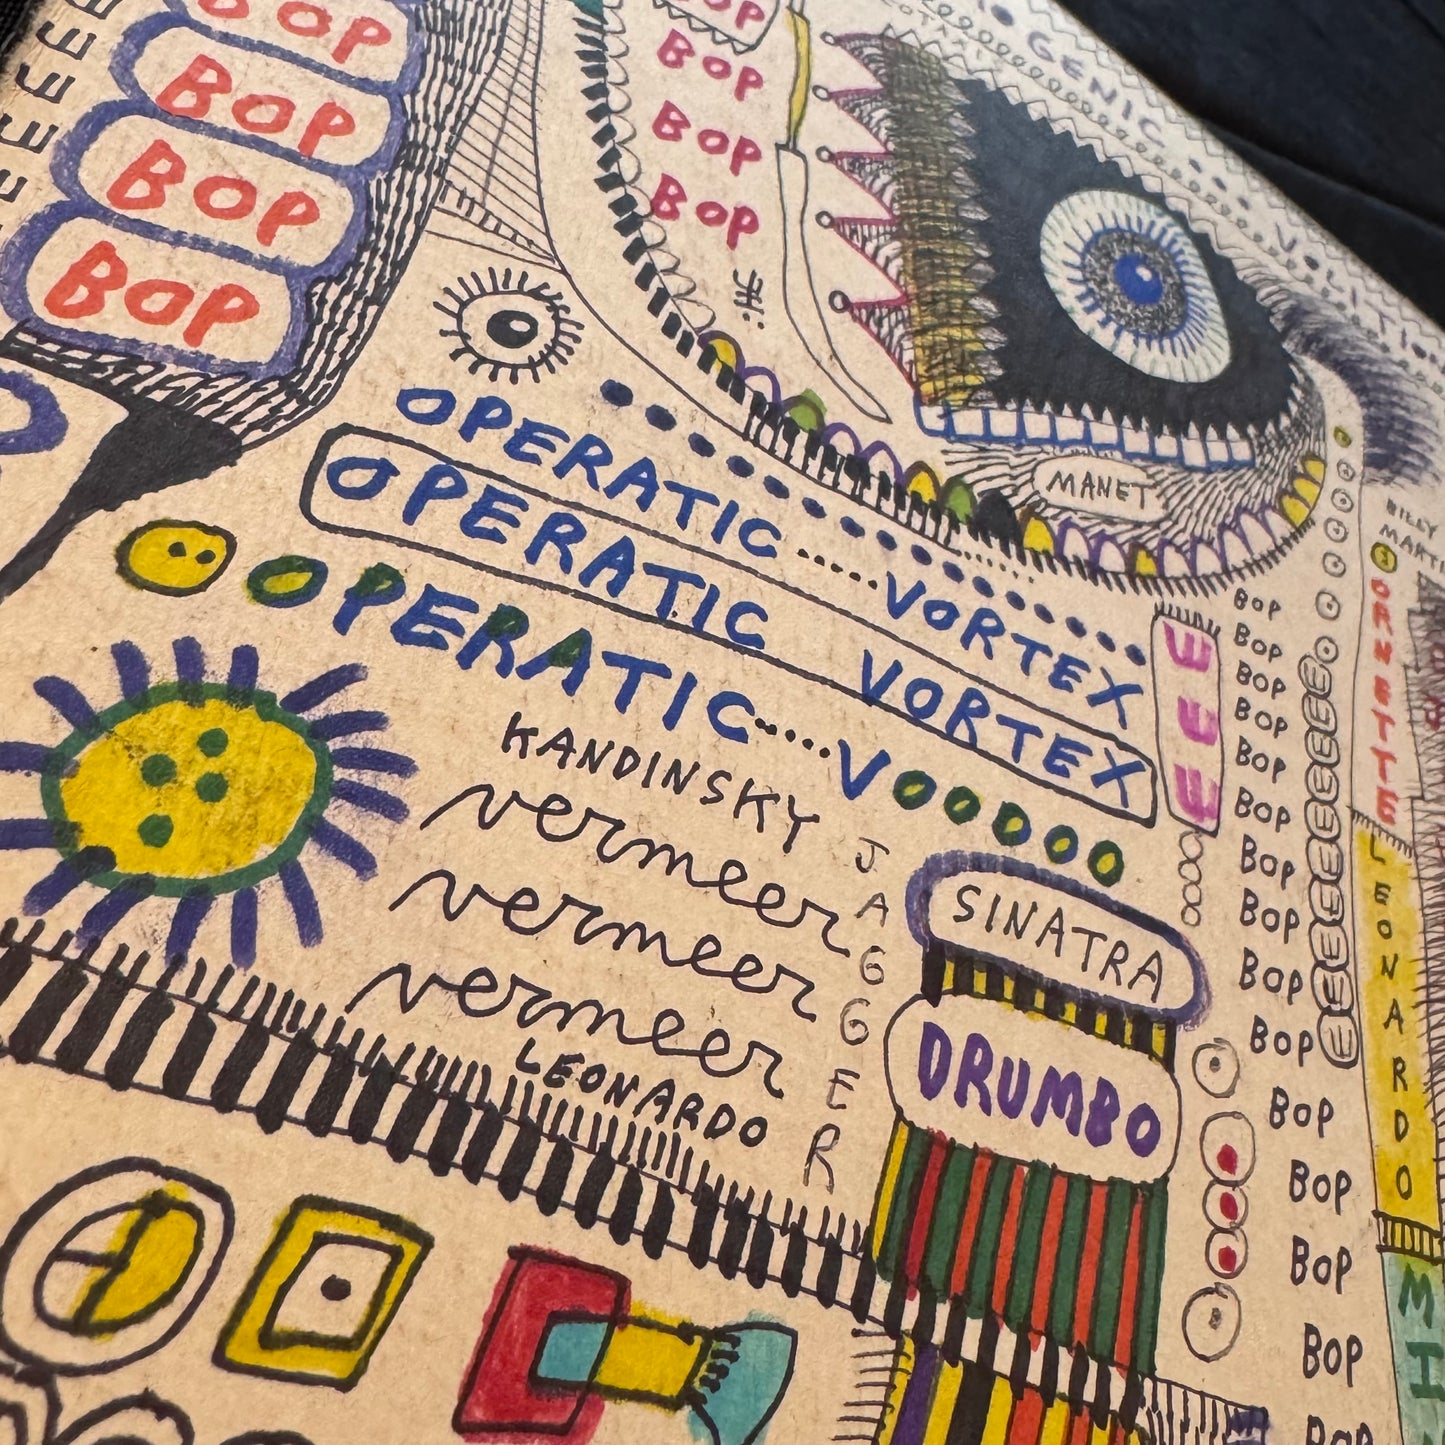 BOP
BOP
BOP
BOP
BOP
BOP
BOP
BOP
GENIC
MANET
OPERATIC.....VORTEX
OPERATIC VORTEX
OPERATIC.....VOODOO
KANDINSKY
vermeer
vermeer
vermeer
LEONARDO
JAGGER
SINATRA
DRUMBO
BOP
BOP
BOP
BOP
BOP
BOP
BOP
BOP
BOP
BOP
BOP
BOP
BOP
BOP
BOP
BILLY
ORNETTE
LEONARDO